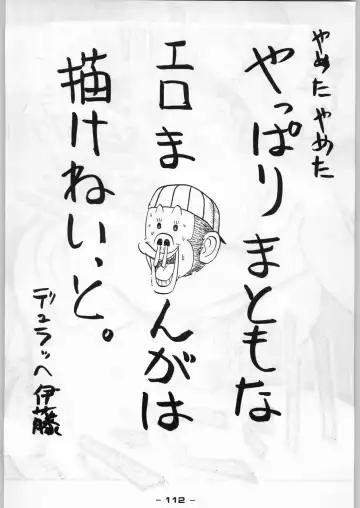 やめた やめた
やっぱりまともな
エロまんがは
描けねいっと。
デュラッヘ伊藤
- 112 -